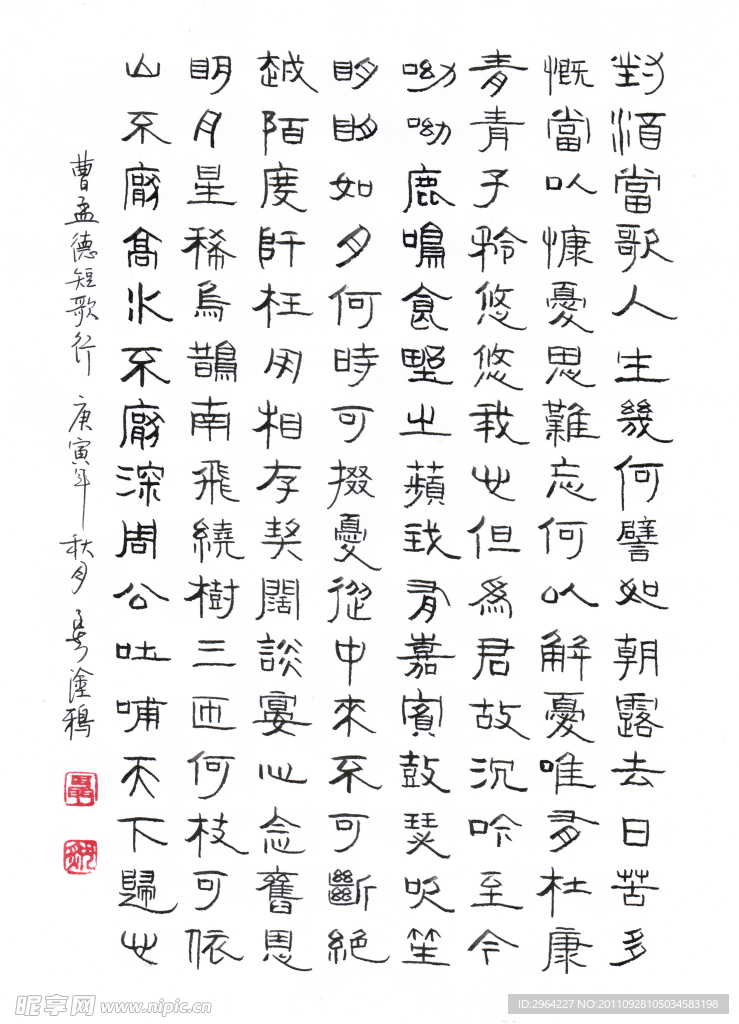 對酒當歌人生幾何譬如朝露去日苦多
慨當以慷憂思難忘何以解憂唯有杜康
青青子衿悠悠我心但為君故沉吟至今
呦呦鹿鳴食野之蘋我有嘉賓鼓瑟吹笙
明明如月何時可掇憂從中來不可斷絕
越陌度阡枉用相存契闊談宴心念舊恩
明月星稀烏鵲南飛繞樹三匝何枝可依
山不厭高水不厭深周公吐哺天下歸心
曹孟德短歌行 庚寅年秋月 塗鴉
昵享网 www.nipic.cn
ID:2964227 NO:20110928105034583198